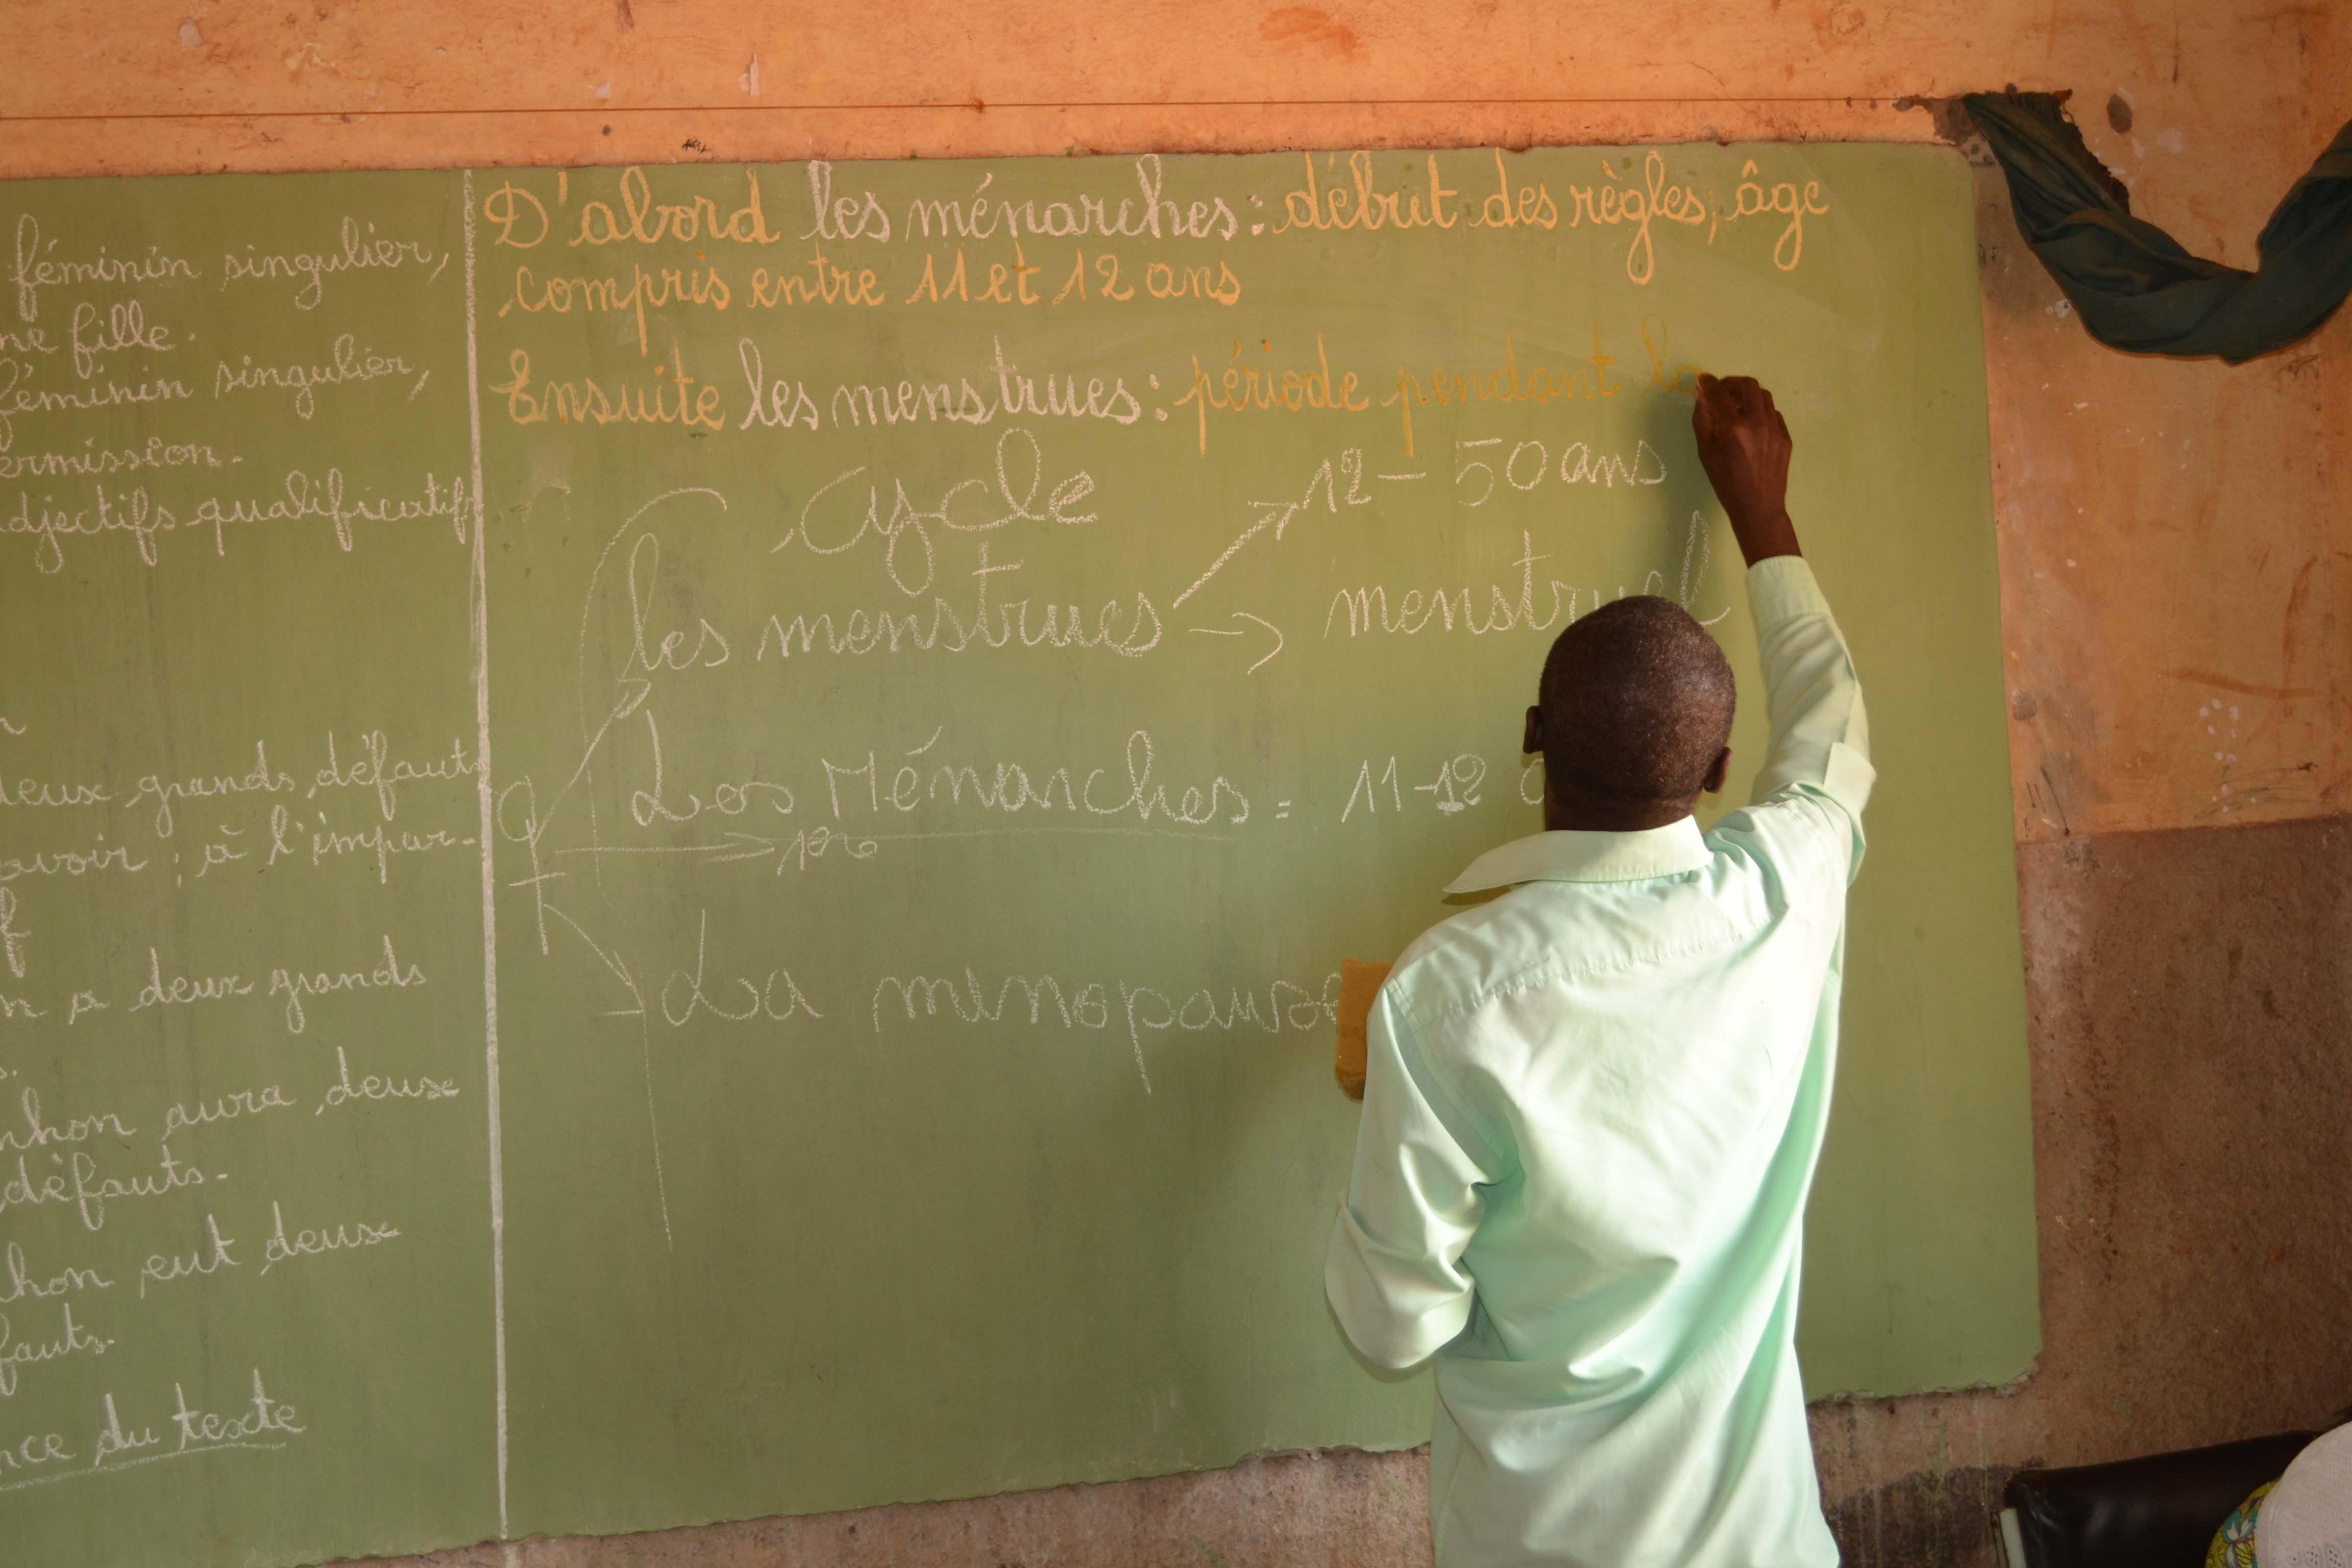 féminin singulier,
ne fille.
féminin singulier,
ermission.
djectifs qualificatifs
deux grands défauts
avoir ; à l'impar-
f
n a deux grands
s.
nhon aura deux
défauts.
chon eut deux
fauts.
nce du texte
D'abord les ménarches : début des règles; âge
compris entre 11 et 12 ans
Ensuite les menstrues : période pendant la
cycle
12 - 50 ans
les menstrues → menstruel
Les Ménarches = 11-12
La minopause